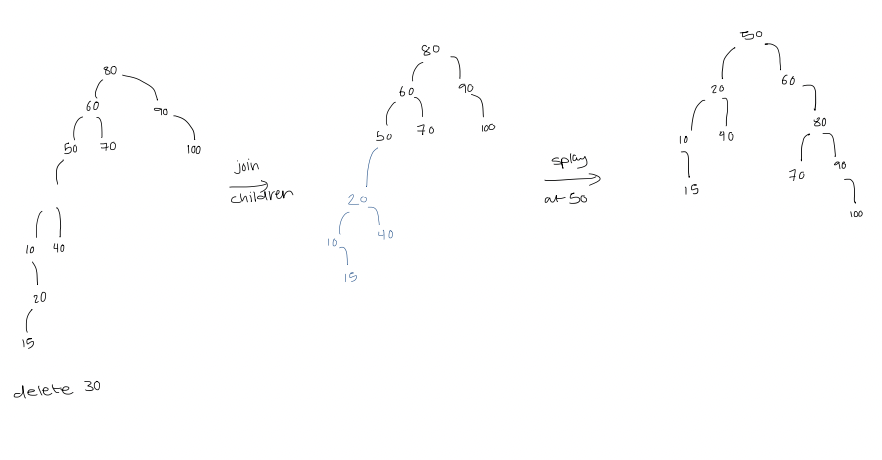 80
60
90
50 70
100
10 40
20
15
delete 30
join
children
80
60
90
50
70
100
20
10
40
15
splay
at 50
50
20
60
10
40
80
15
70
90
100